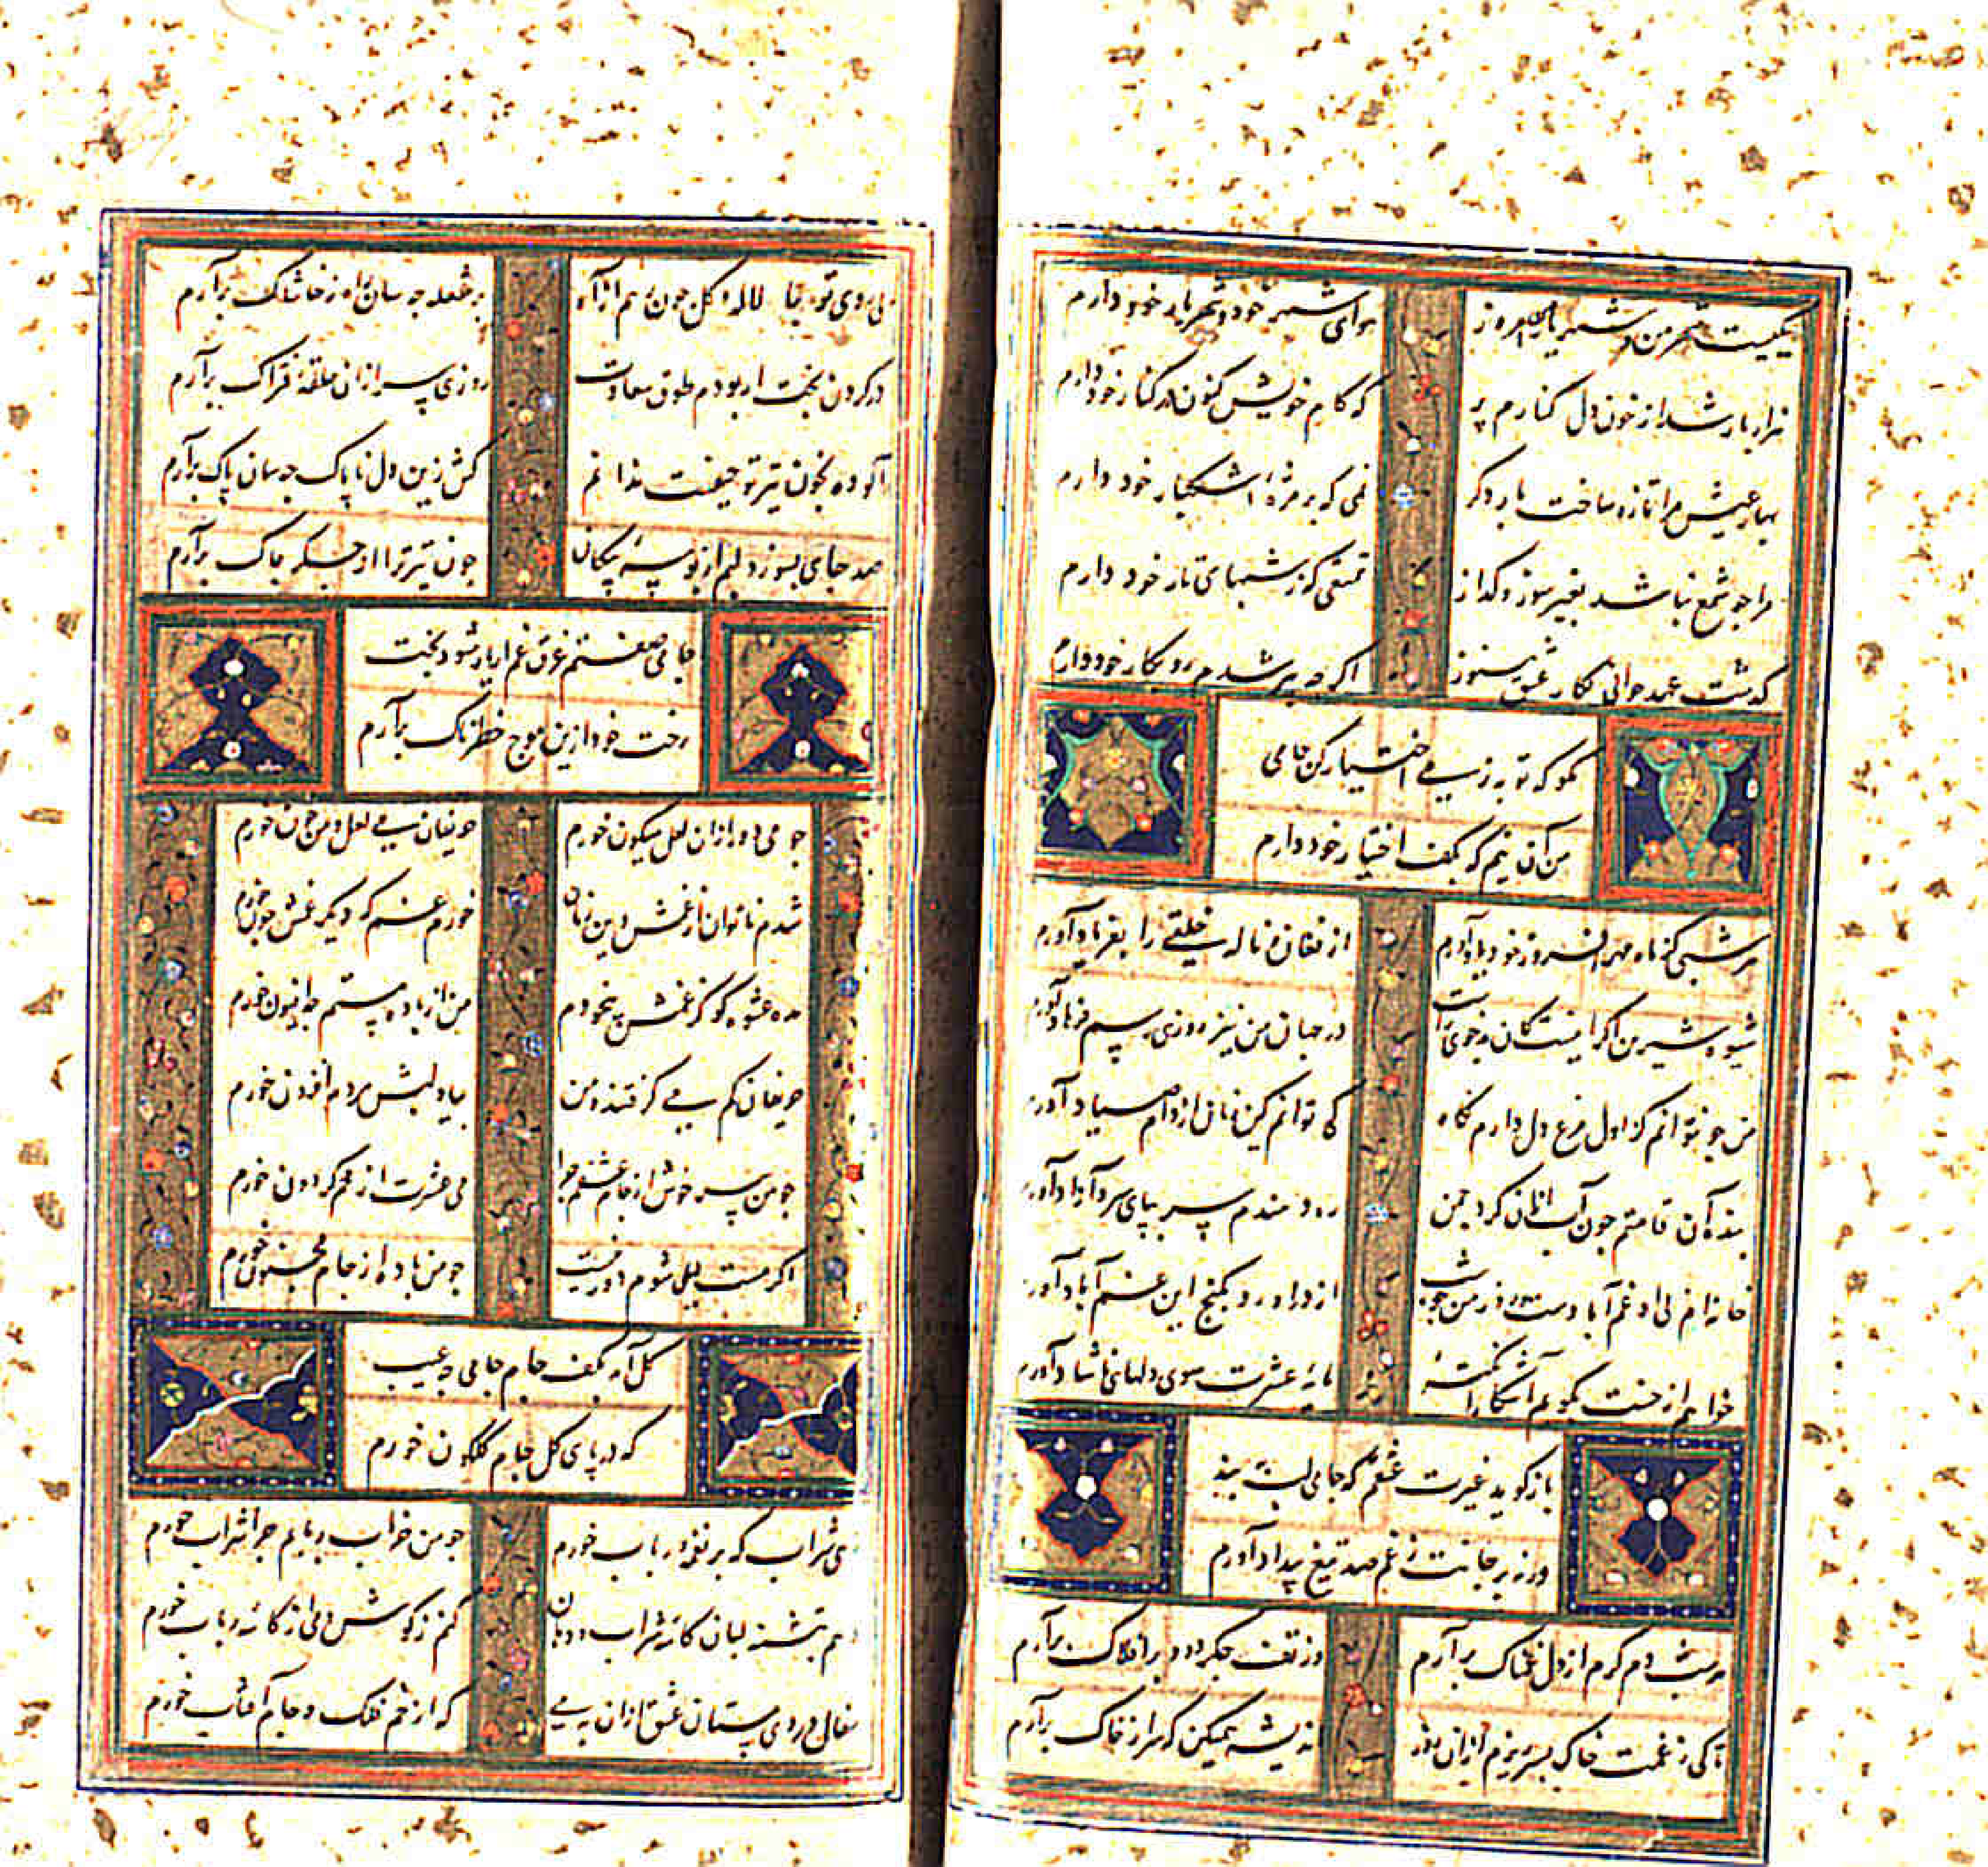 یکیست شهر من و شهریار امروز
هوای شهر خود و شهریار خود دارم
هزار بار شد از خون دل کنارم پر
که کام خویش کنون در کنار خود دارم
بهار عیش مرا تازه ساخت بار دگر
نمی که بر مژهٔ اشکبار خود دارم
مرا چو شمع نباشد بغیر سوز و گداز
تمتعی که ز شبهای تار خود دارم
گذشت عهد جوانی بکار عشق هنوز
اگرچه پیر شدم رو بکار خود دارم
مگو که توبه ز می اختیار کن جامی
من آن نیم که بکف اختیار خود دارم
هر شبی کز ماه مهرافروز خود یاد آورم
از فغان و ناله خلقی را بفریاد آورم
شیوه شیرین اگر اینست کان بدخوی راست
در جهان من نیز روزی رسم فرهاد آورم
من چو نتوانم کز اول مرغ دل دارم نگاه
کی توانم کین زمان از دام صیاد آورم
بنده آن قامتم چون آب ازان گرد چمن
رو نهم سر بپای سرو آزاد آورم
خانه‌ام بی او غم آباد
از در او رو بکنج این غم آباد آورم
خواهم از حسنت بگویم آشکارا نکتهٔ
مایه عشرت سوی دلهای ناشاد آورم
باز گوید غیرت عشقم که جامی لب ببند
ورنه بر جانت ز غم صد تیغ بیداد آورم
هر شب دم گرم از دل غمناک برآرم
وز تف جگر دود بر افلاک برآرم
تا کی ز غمت خاک بسر ریزم ازان روز
اندیشه همیکن که سر از خاک برآرم
بی روی تو لاله و گل چون دهم از آه
پر شعله چه سان ز خاشاک برآرم
در گردن بخت ار بودم طوق سعادت
روزی سر ازان حلقهٔ فتراک برآرم
آلوده بخون تیر تو حیفست ندانم
کش زین دل ناپاک چه سان پاک برآرم
صد جای بسوزد لبم از بوسهٔ پیکان
چون تیر ترا از جگر چاک برآرم
جامی صفتم غرق غم ار یار شود بخت
رخت خود ازین موج خطرناک برآرم
چو می دور ازان لعل میگون خورم
حریفان می لعل و من خون خورم
شدم ناتوان از غمش وین زمان
خورم غم که دیگر غمش چون خورم
مده عشوه گو کز غمش بیخودم
من از باده مستم چه افیون خورم
حریفان کم می گرفتند و من
بیاد لبش هر دم افزون خورم
چو من سر خوش از جام عشقم چرا
می عشرت از خم گردون خورم
اگر مست لیلی شوم دور نیست
چو من باده از جام مجنون خورم
گل آمد بکف جام جامی چه عیب
که در پای گل جام گلگون خورم
می شراب که بر نغمه رباب خورم
چو من خراب ربابم چرا شراب خورم
دهم بتشنه لبان کاسه شراب و دهان
کنم ز گوش و می از کاسه رباب خورم
سفال دردی مستان عشق ازان به می
که از خم فلک و جام آفتاب خورم